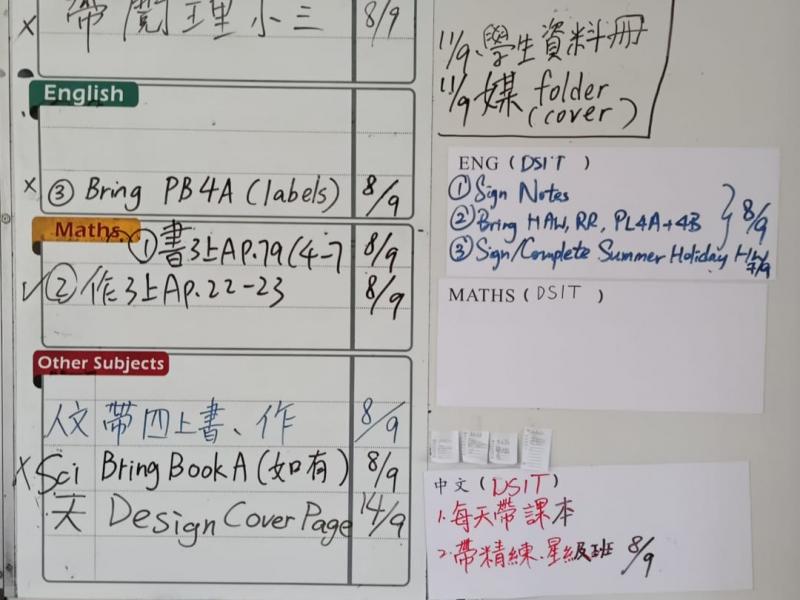 帶閱理小三 8/9
English
③ Bring PB4A (labels) 8/9
Maths
① 書3上A P.79 (4-7 8/9
② 作3上A p.22-23 8/9
Other Subjects
人文 帶四上書、作 8/9
Sci Bring Book A (如有) 8/9
天 Design Cover Page 14/9
11/9 學生資料冊
11/9 媒 folder
(cover)
ENG (DSIT)
① Sign Notes
② Bring HAW, RR, PL4A+4B 8/9
③ Sign/Complete Summer Holiday HW 7/9
MATHS (DSIT)
中文 (DSIT)
1. 每天帶課本
2. 帶精練、星級及班 8/9